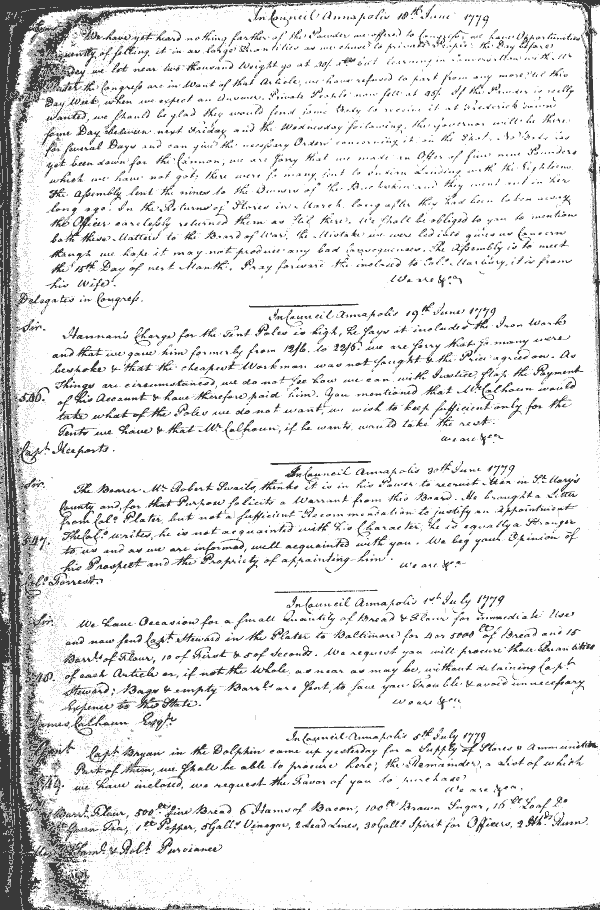 In Council Annapolis 18th June 1779
We have yet heard nothing farther of the Powder we offered to Congress, we have Opportunities
frequently of selling it in as large Quantities as we chuse to private People: the Day before
we lot near two thousand Weight
the Congress are in Want of that Article, we have refused to part from any more 'til this
Day Week, when we expect an Answer. Private People now sell at If the Powder is really
wanted, we should be glad they would send some Body to receive it at Frederick Town
some Day between next Friday and the Wednesday following, the Governor will be there
for several Days and can give the necessary Orders concerning it on the Spot. No Body has
yet been down for the Cannon, we are sorry that we made an Offer of five nine Pounders
which we have not got, there were so many sent to Indian Landing with the Eighteens
The Assembly lent the nines to the Owners of the Buckskin and they went out in her
long ago. In the Returns of Stores in March, long after they had been taken away
the Officer carelessly returned them as still there. We shall be obliged to you to mention
both these Matters to the Board of War, the Mistake we were led into gives us Concern
though we hope it may not produce any bad Consequences. The Assembly is to meet
the 15th Day of next Month. Pray forward the inclosed to Colo. it is from
his Wife.
We are &ca
Delegates in Congress.
In Council Annapolis 19th June 1779
Sir.
Hannan's Charge for the Tent Poles is high, he says it includes the Iron Work
and that we gave him formerly from 12/6. to 22/6. we are sorry that so many were
bespoke & that the cheapest Workman was not sought & the Price agreed on. As
Things are circumstanced, we do not see how we can, with Justice, stop the Payment
546. of his Account & have therefore paid him. You mentioned that Mr Calhoun would
take what of the Poles we do not want, we wish to keep sufficient only for the
Tents we have & that Mr Calhoun, if he wants, would take the rest.
we are &ca
Capt. Keeports.
In Council Annapolis 30th June 1779
Sir.
The Bearer Mr Robert Swailes, thinks it is in his Power to recruit Men in St Mary's
County and, for that Purpose solicits a Warrant from this Board. He brought a Letter
from Colo. Plater, but not a sufficient Recommendation to justify an Appointment
547. The Colo. writes, he is not acquainted with his Character, he is equally a Stranger
to us and as we are informed, well acquainted with you. We beg your Opinion of
his Prospect and the Propriety of appointing him.
We are &ca
Colo. Forrest.
In Council Annapolis 1st July 1779
Sir.
We have Occasion for a small Quantity of Bread & Flour for immediate Use
and now send Capt Steward in the Plater to Baltimore for 4 or 5000 lb of Bread and 15
Barrs. of Flour, 10 of First & 5 of Seconds. We request you will procure those Quantities
548. of each Article or, if not the Whole, as near as may be, without detaining Capt
Steward; Bags & empty Barrs. are sent, to save you Trouble & avoid unnecessary
Expence to this State.
we are &ca
James Calhoun Esqr.
In Council Annapolis 5th July 1779
Gent
Capt Bryan in the Dolphin came up yesterday for a Supply of Stores & Ammunition
Part of them, we shall be able to procure here; the Remainder, a List of which
549. we have inclosed, we request the Favor of you to purchase
We are &ca
Barrs. Flour, 500 lb. fine Bread 6 Hams of Bacon, 100 lb. Brown Sugar, 15 lb. Loaf Do
Green Tea, 1 lb Pepper, 5 Galls. Vinegar, 2 Lead Lines, 30 Galls. Spirit for Officers, 2 Hhds Rum
Saml. & Robt Purviance